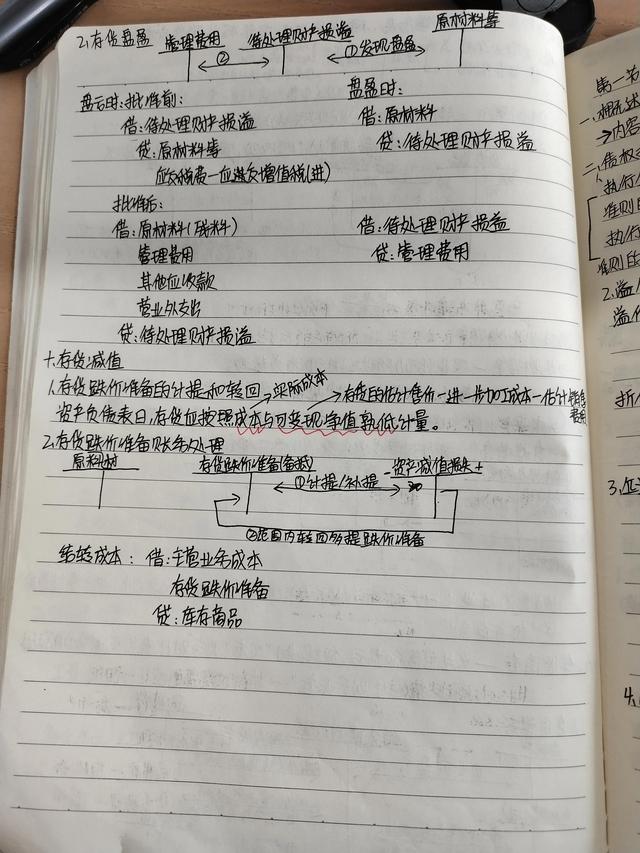 2. 存货盘盈 管理费用 待处理财产损溢 原材料等
② ①发现盘盈
盘亏时:批准前: 盘盈时:
借:待处理财产损溢 借:原材料
贷:原材料等 贷:待处理财产损溢
应交税费—应交增值税(进)
批准后:
借:原材料(残料) 借:待处理财产损溢
管理费用 贷:管理费用
其他应收款
营业外支出
贷:待处理财产损溢
十.存货减值
1.存货跌价准备的计提和转回 实际成本 存货的估计售价—进一步加工成本—估计销售费用
资产负债表日,存货应按照成本与可变现净值孰低计量。
2.存货跌价准备账务处理
原材料 存货跌价准备(备抵) - 资产减值损失 +
①计提/补提
②范围内转回多提跌价准备
结转成本: 借:主营业务成本
存货跌价准备
贷:库存商品
第一节
一、概述
→内容
二、债权
执行
准则的
执行
准则的
2.溢
溢价
折
3.
4.